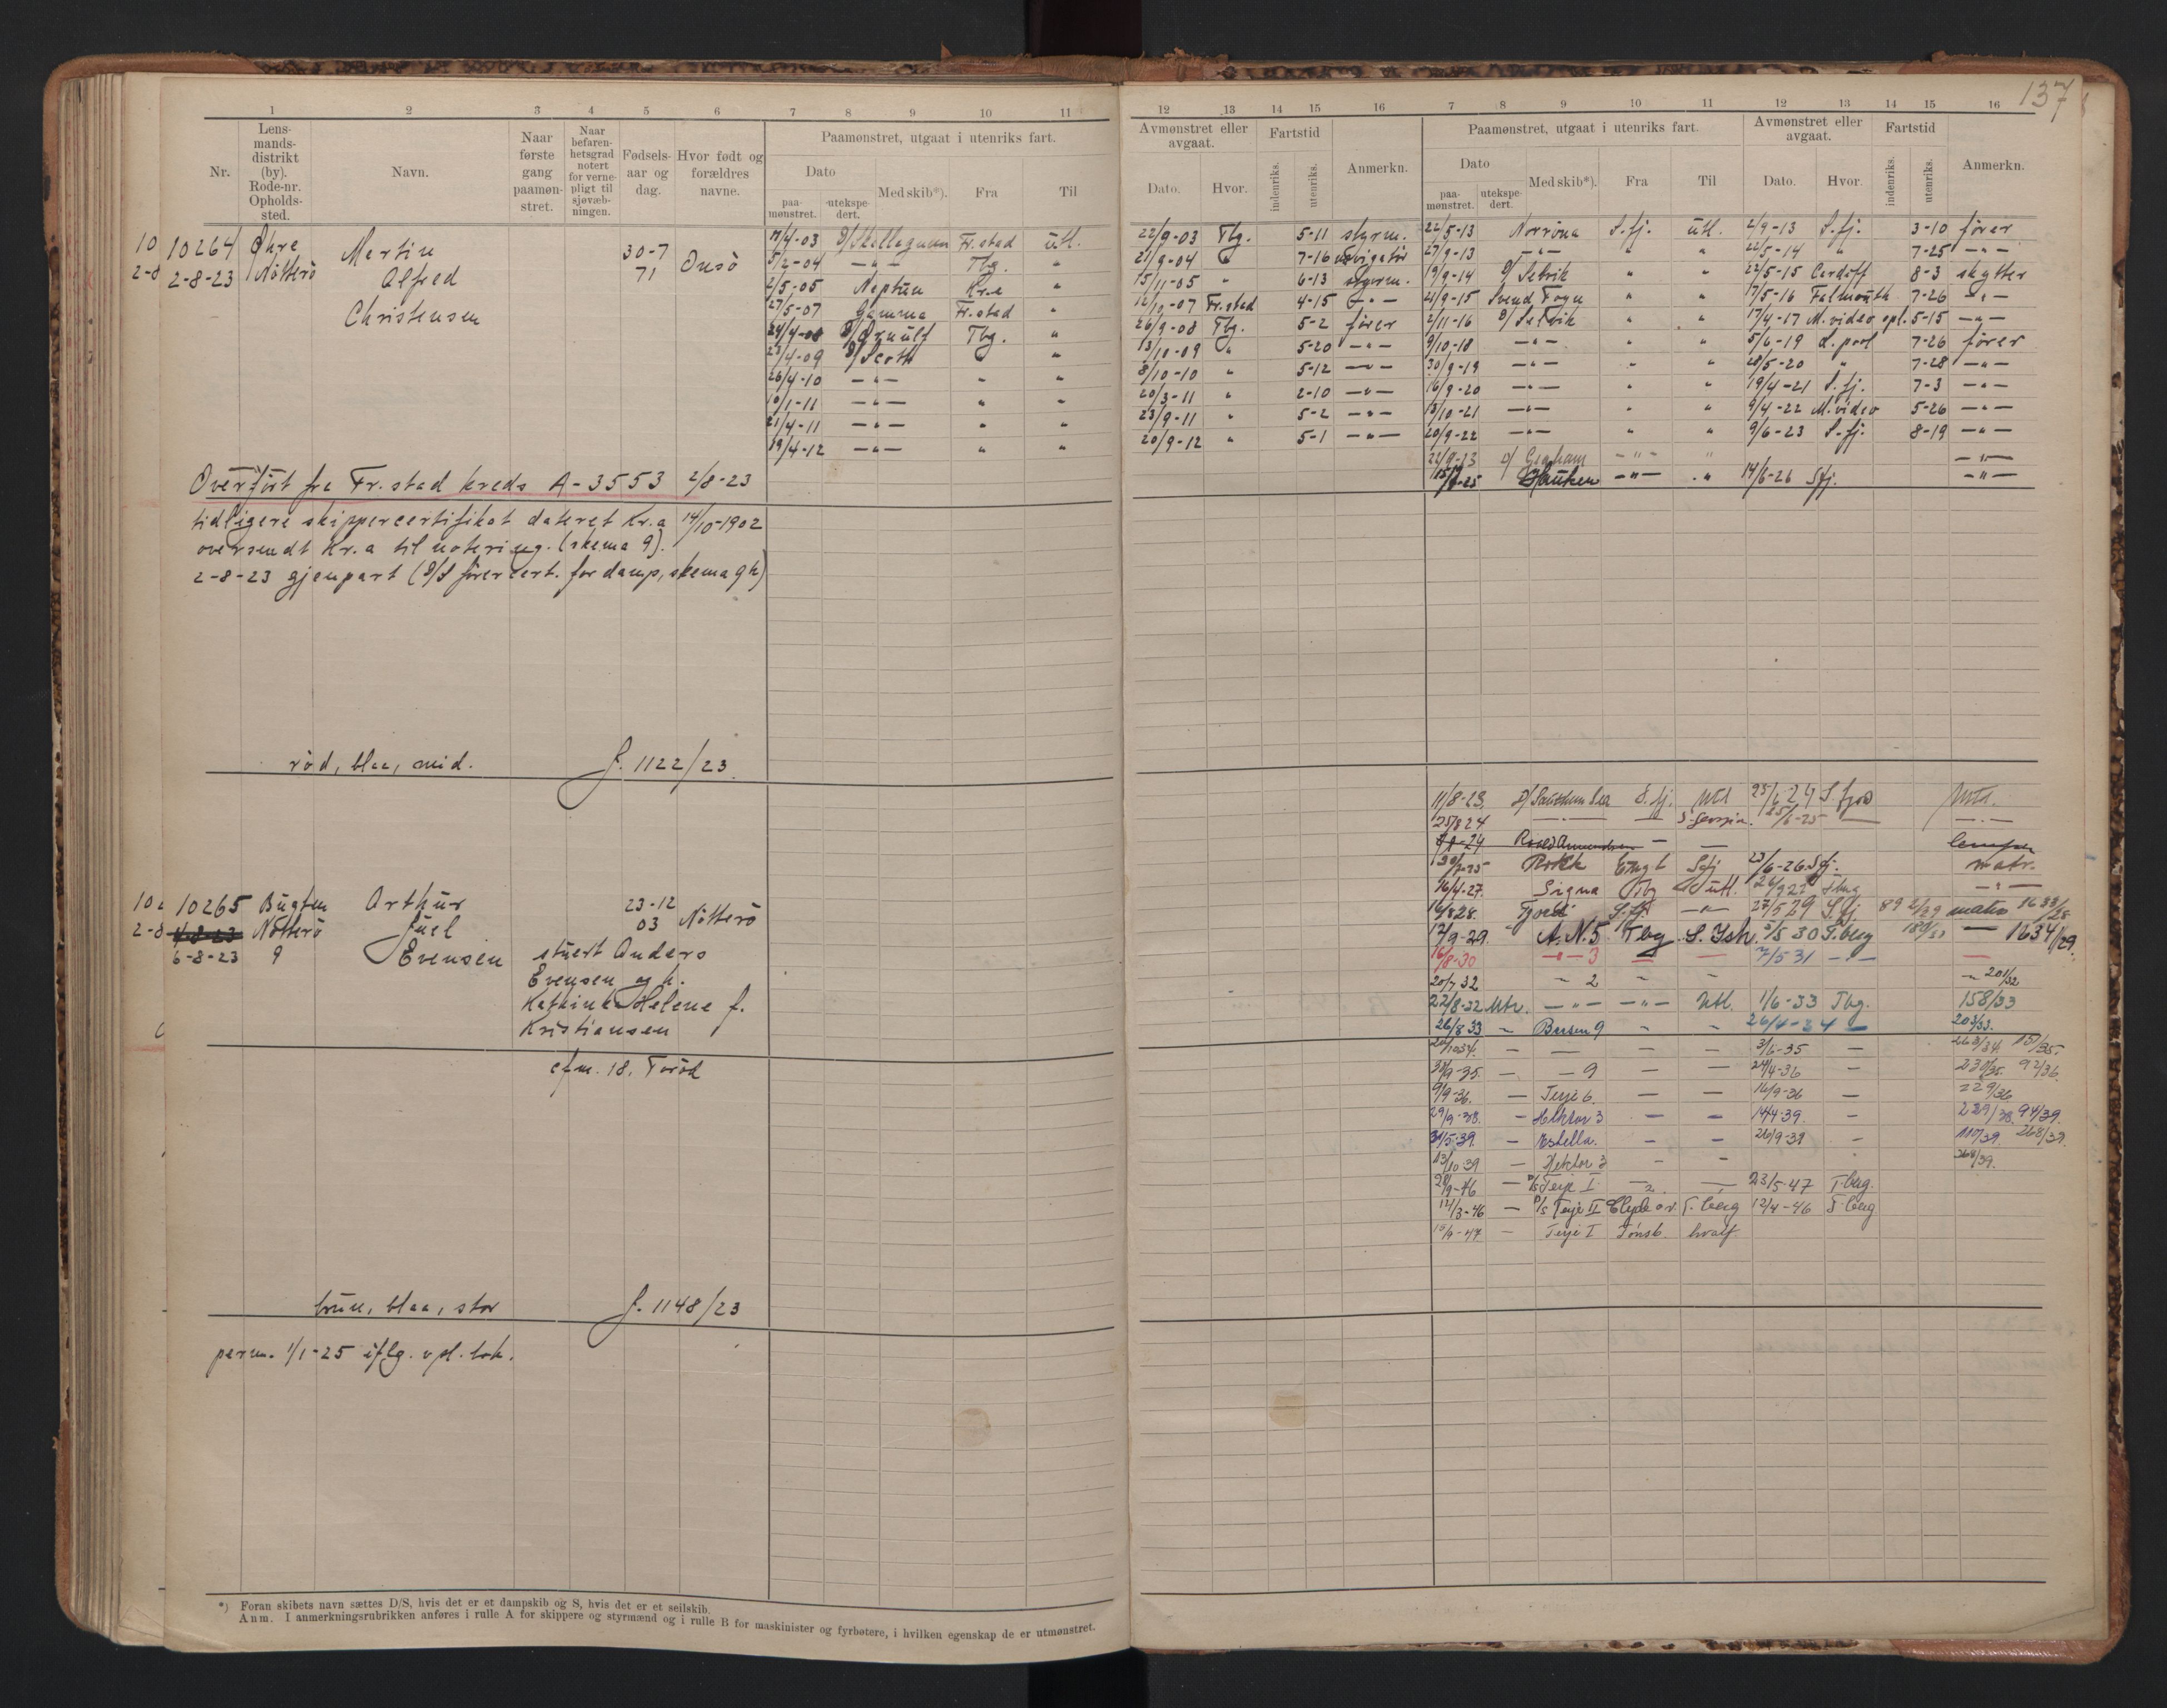 137
1 2 3 4 5 6 7 8 9 10 11
Nr.
Lens-
mands-
distrikt
(by).
Rode-nr.
Opholds-
sted.
Navn.
Naar
første
gang
paamøn-
stret.
Naar
befaren-
hetsgrad
notert
for verne-
pligt til
sjøvæb-
ningen.
Fødsels-
aar og
dag.
Hvor født og
forældres
navne.
Paamønstret, utgaat i utenriks fart.
Dato
paa-
mønstret.
utekspe-
dert.
Med skib*).
Fra
Til
10264 Øhre Martin 30-7 Onsö
2-8-23 Nötterö Alfred 71
Christensen
17/4-03 D/ Skallagrim Fr.stad utl.
5/2-04 -"- Tbg. "
2/5-05 Neptun Kr.a "
27/5-07 Gamma Fr.stad "
24/4-08 D/ Ørnulf Tbg. "
23/4-09 D/ Scott " "
26/4-10 -"- " "
10/1-11 -"- " "
21/4-11 -"- " "
19/4-12 -"- " "
Overfört fra Fr.stad kreds A-3553 2/8-23
tidligere skippercertifikat dateret Kr.a 14/10-1902
oversendt Kr.a til notering. (skema 9).
2-8-23 gjenpart (D/S förercert. for damp, skema 9 h)
röd, blaa, mid. J. 1122/23
10265 Bugten Arthur 23-12 Nötterö
4-8-23 Nötterö Juel 03
6-8-23 9 Evensen stuert Anders
Evensen og h.
Kathinka Helene f.
Kristiansen
cfm. 18. Toröd
brun, blaa, stor J. 1148/23
perm. 1/1-25 iflg. vpl. bok.
*) Foran skibets navn sættes D/S, hvis det er et dampskib og S, hvis det er et seilskib.
Anm. I anmerkningsrubrikken anføres i rulle A for skippere og styrmænd og i rulle B for maskinister og fyrbøtere, i hvilken egenskap de er utmønstret.
12 13 14 15 16 7 8 9 10 11 12 13 14 15 16
Avmønstret eller
avgaat.
Dato.
Hvor.
Fartstid
indenriks.
utenriks.
Anmerkn.
Paamønstret, utgaat i utenriks fart.
Dato
paa-
mønstret.
utekspe-
dert.
Med skib*).
Fra
Til
Avmønstret eller
avgaat.
Dato.
Hvor.
Fartstid
indenriks.
utenriks.
Anmerkn.
22/9-03 Tbg. 5-11 styrm. 22/5-13 Norröna S.fj. utl. 2/9-13 S.fj. 3-10 förer
21/9-04 " 7-16 Navigatör 27/9-13 -"- " " 22/5-14 " 7-25 -"-
15/11-05 " 6-13 styrm. 19/9-14 D/ Selvik " " 22/5-15 Cardiff 8-3 skytter
12/10-07 Fr.stad 4-15 -"- 21/9-15 Svend Foyn " " 17/5-16 Falmouth 7-26 -"-
26/9-08 Tbg. 5-2 förer 2/11-16 D/ Selvik " " 17/4-17 M.video opl. 5-15 -"-
13/10-09 " 5-20 -"- 9/10-18 -"- " " 5/6-19 L.pool 7-26 förer
8/10-10 " 5-12 -"- 30/9-19 -"- " " 28/5-20 " 7-28 -"-
20/3-11 " 2-10 -"- 16/9-20 -"- " " 19/4-21 S.fj. 7-3 -"-
23/9-11 " 5-2 -"- 13/10-21 -"- " " 9/4-22 M.video 5-26 -"-
20/9-12 " 5-1 -"- 20/9-22 -"- " " 9/6-23 S.fj. 8-19 -"-
22/9-23 D/ Graham -"- " -"-
25 Hauken -"- " 14/6-26 Sfj. -"-
11/8-23 D/ Southern Sea S.fj. Utl 25/6 24 S.fjord
25/8 24 - - S.Georgia. 25/6-25 - -
24 Roald Amundsen - - lempe
25 Engl Sfj 23/6-26 Sfj. matr.
16/4-27 Signa Tbg utl. 27 -"-
16/8 28. S.fj. -"- 27/5 29 S.fj 89 matr 1633/28
17/9-29. A.N.5 Tbg S.Ish. 2/5 30 T.berg - 1634/29.
16/8-30 -"- 3 - - 7/5 31 - -
20/7 32 " 2 - - " 201/32
22/8-32 Mtr. -"- -"- Utl. 1/6-33 Tbg. 158/33
26/8 33 - Busen 9 - - 26/4-34 - 203/33.
34. - - - - 3/6-35 - 263/34 151/35.
35. - - 9 - - 24/4-36 - 230/35. 92/36.
9/9-36. - Terje 6. - - 16/9-36 - 229/36
29/9-38. - Hektor 3 - - 14/4-39. - 94/39.
31/5-39. - Estella. - - 26/9-39 - 117/39. 268/39.
13/10 39 - Hektor 3 - - 268/39.
28/9-46 - Terje I - - 23/5-47 T.berg.
12/3-46 - Terje II Clyde T.berg 12/4-46 T.berg
47 - Terje I Tønsb. hvalf.